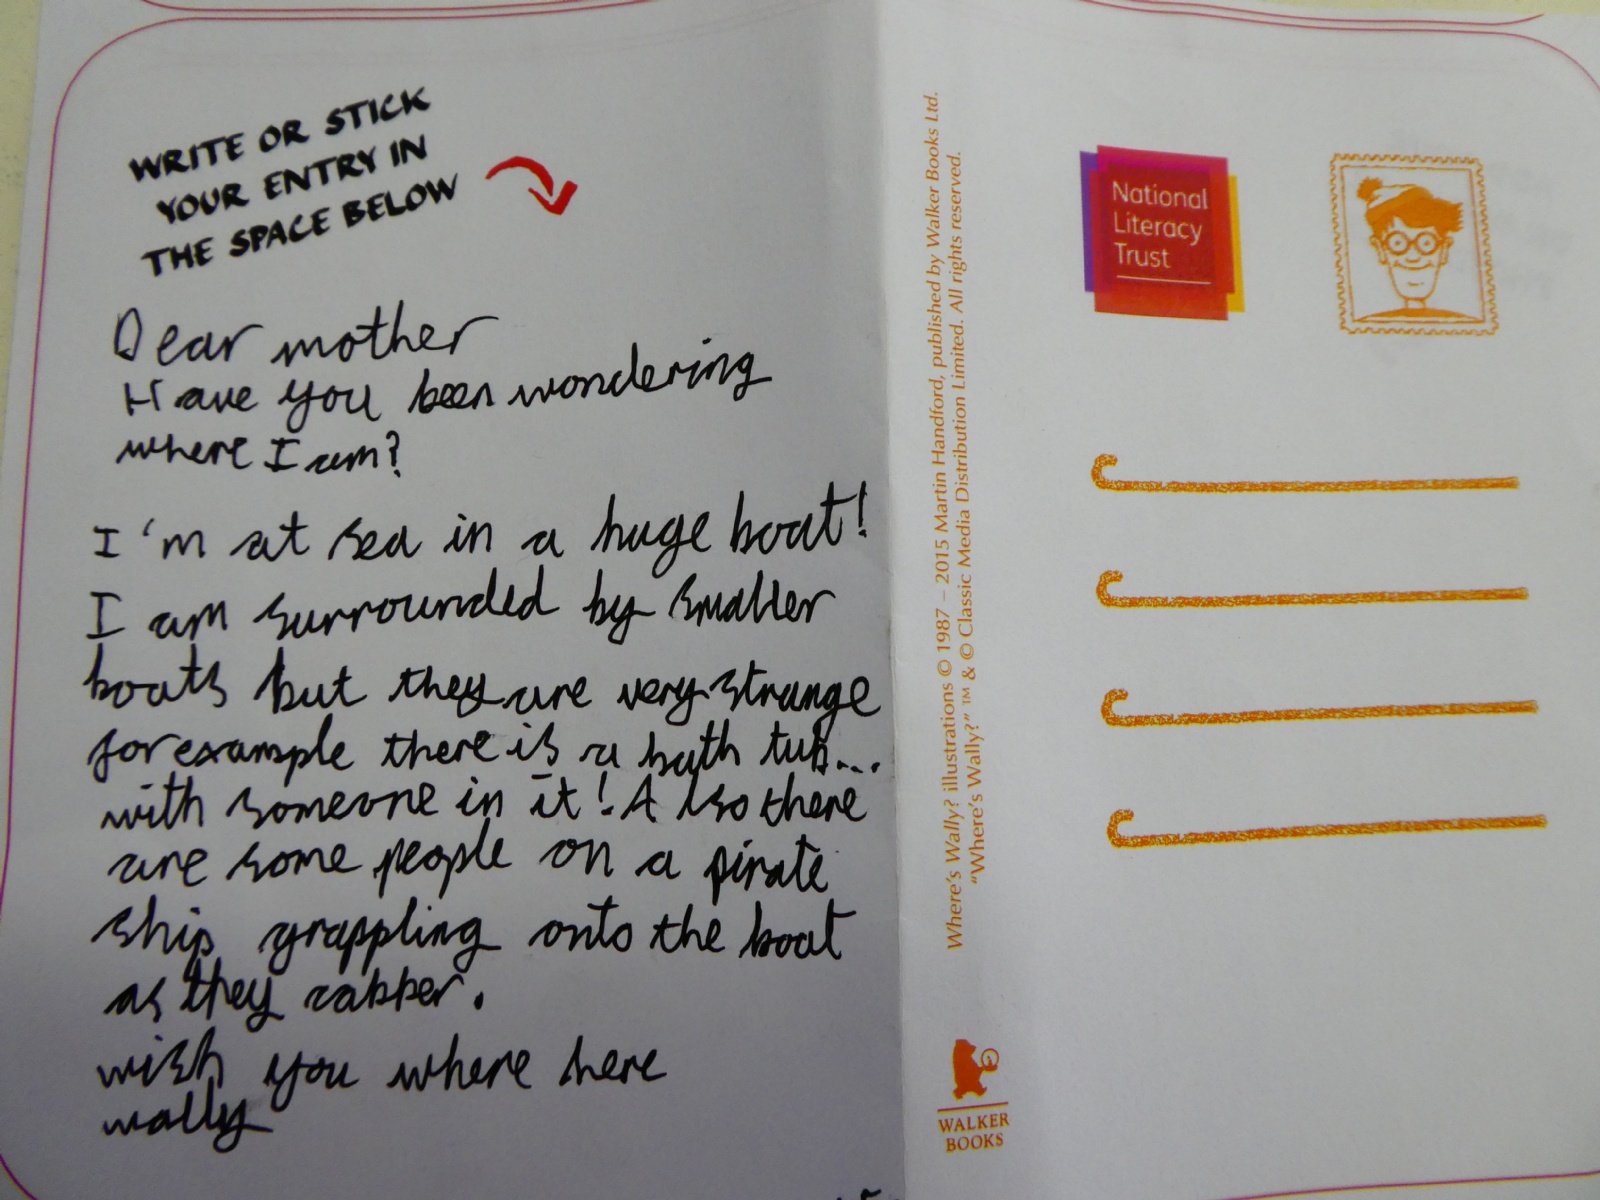 WRITE OR STICK
YOUR ENTRY IN
THE SPACE BELOW
Dear mother
Have you been wondering
where I am?
I'm at sea in a huge boat!
I am surrounded by smaller
boats but they are very strange
for example there is a bath tub...
with someone in it! Also there
are some people on a pirate
ship grappling onto the boat
as they
wish you where here
wally
Where's Wally? illustrations © 1987 – 2015 Martin Handford, published by Walker Books Ltd.
"Where's Wally?" ™ & © Classic Media Distribution Limited. All rights reserved.
National
Literacy
Trust
WALKER
BOOKS